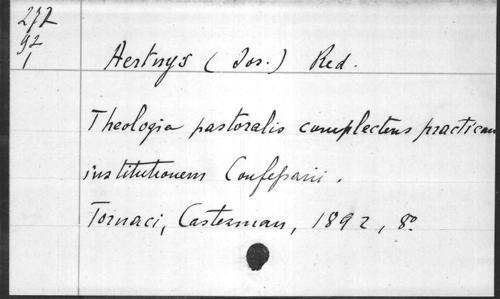 272
92
1
Aertnys (Jos.) Red.
Theologia pastoralis complectens practicam
institutionem Confessarii.
Tornaci, Casterman, 1892, 8º.